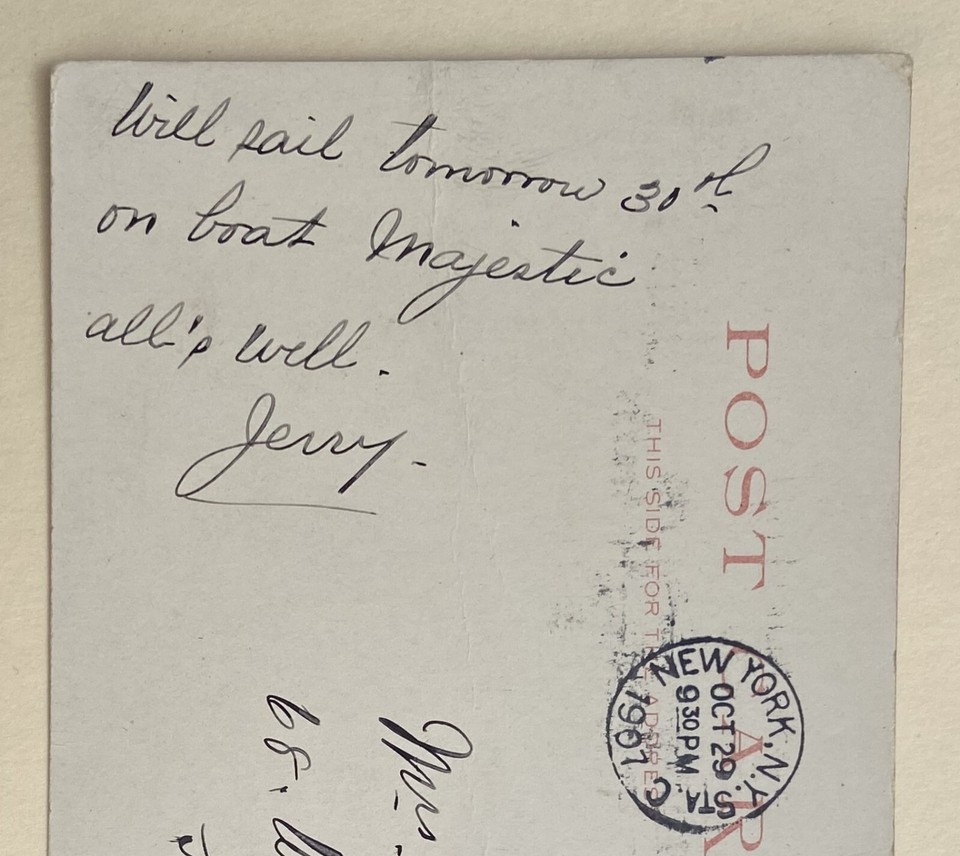 Will sail tomorrow 30th
on boat Majestic
all's well.
Jerry.
POST CAR
THIS SIDE FOR THE ADDRESS
NEW YORK, N.Y. STA. C
OCT 29
930 PM
1901
Mrs.
68.